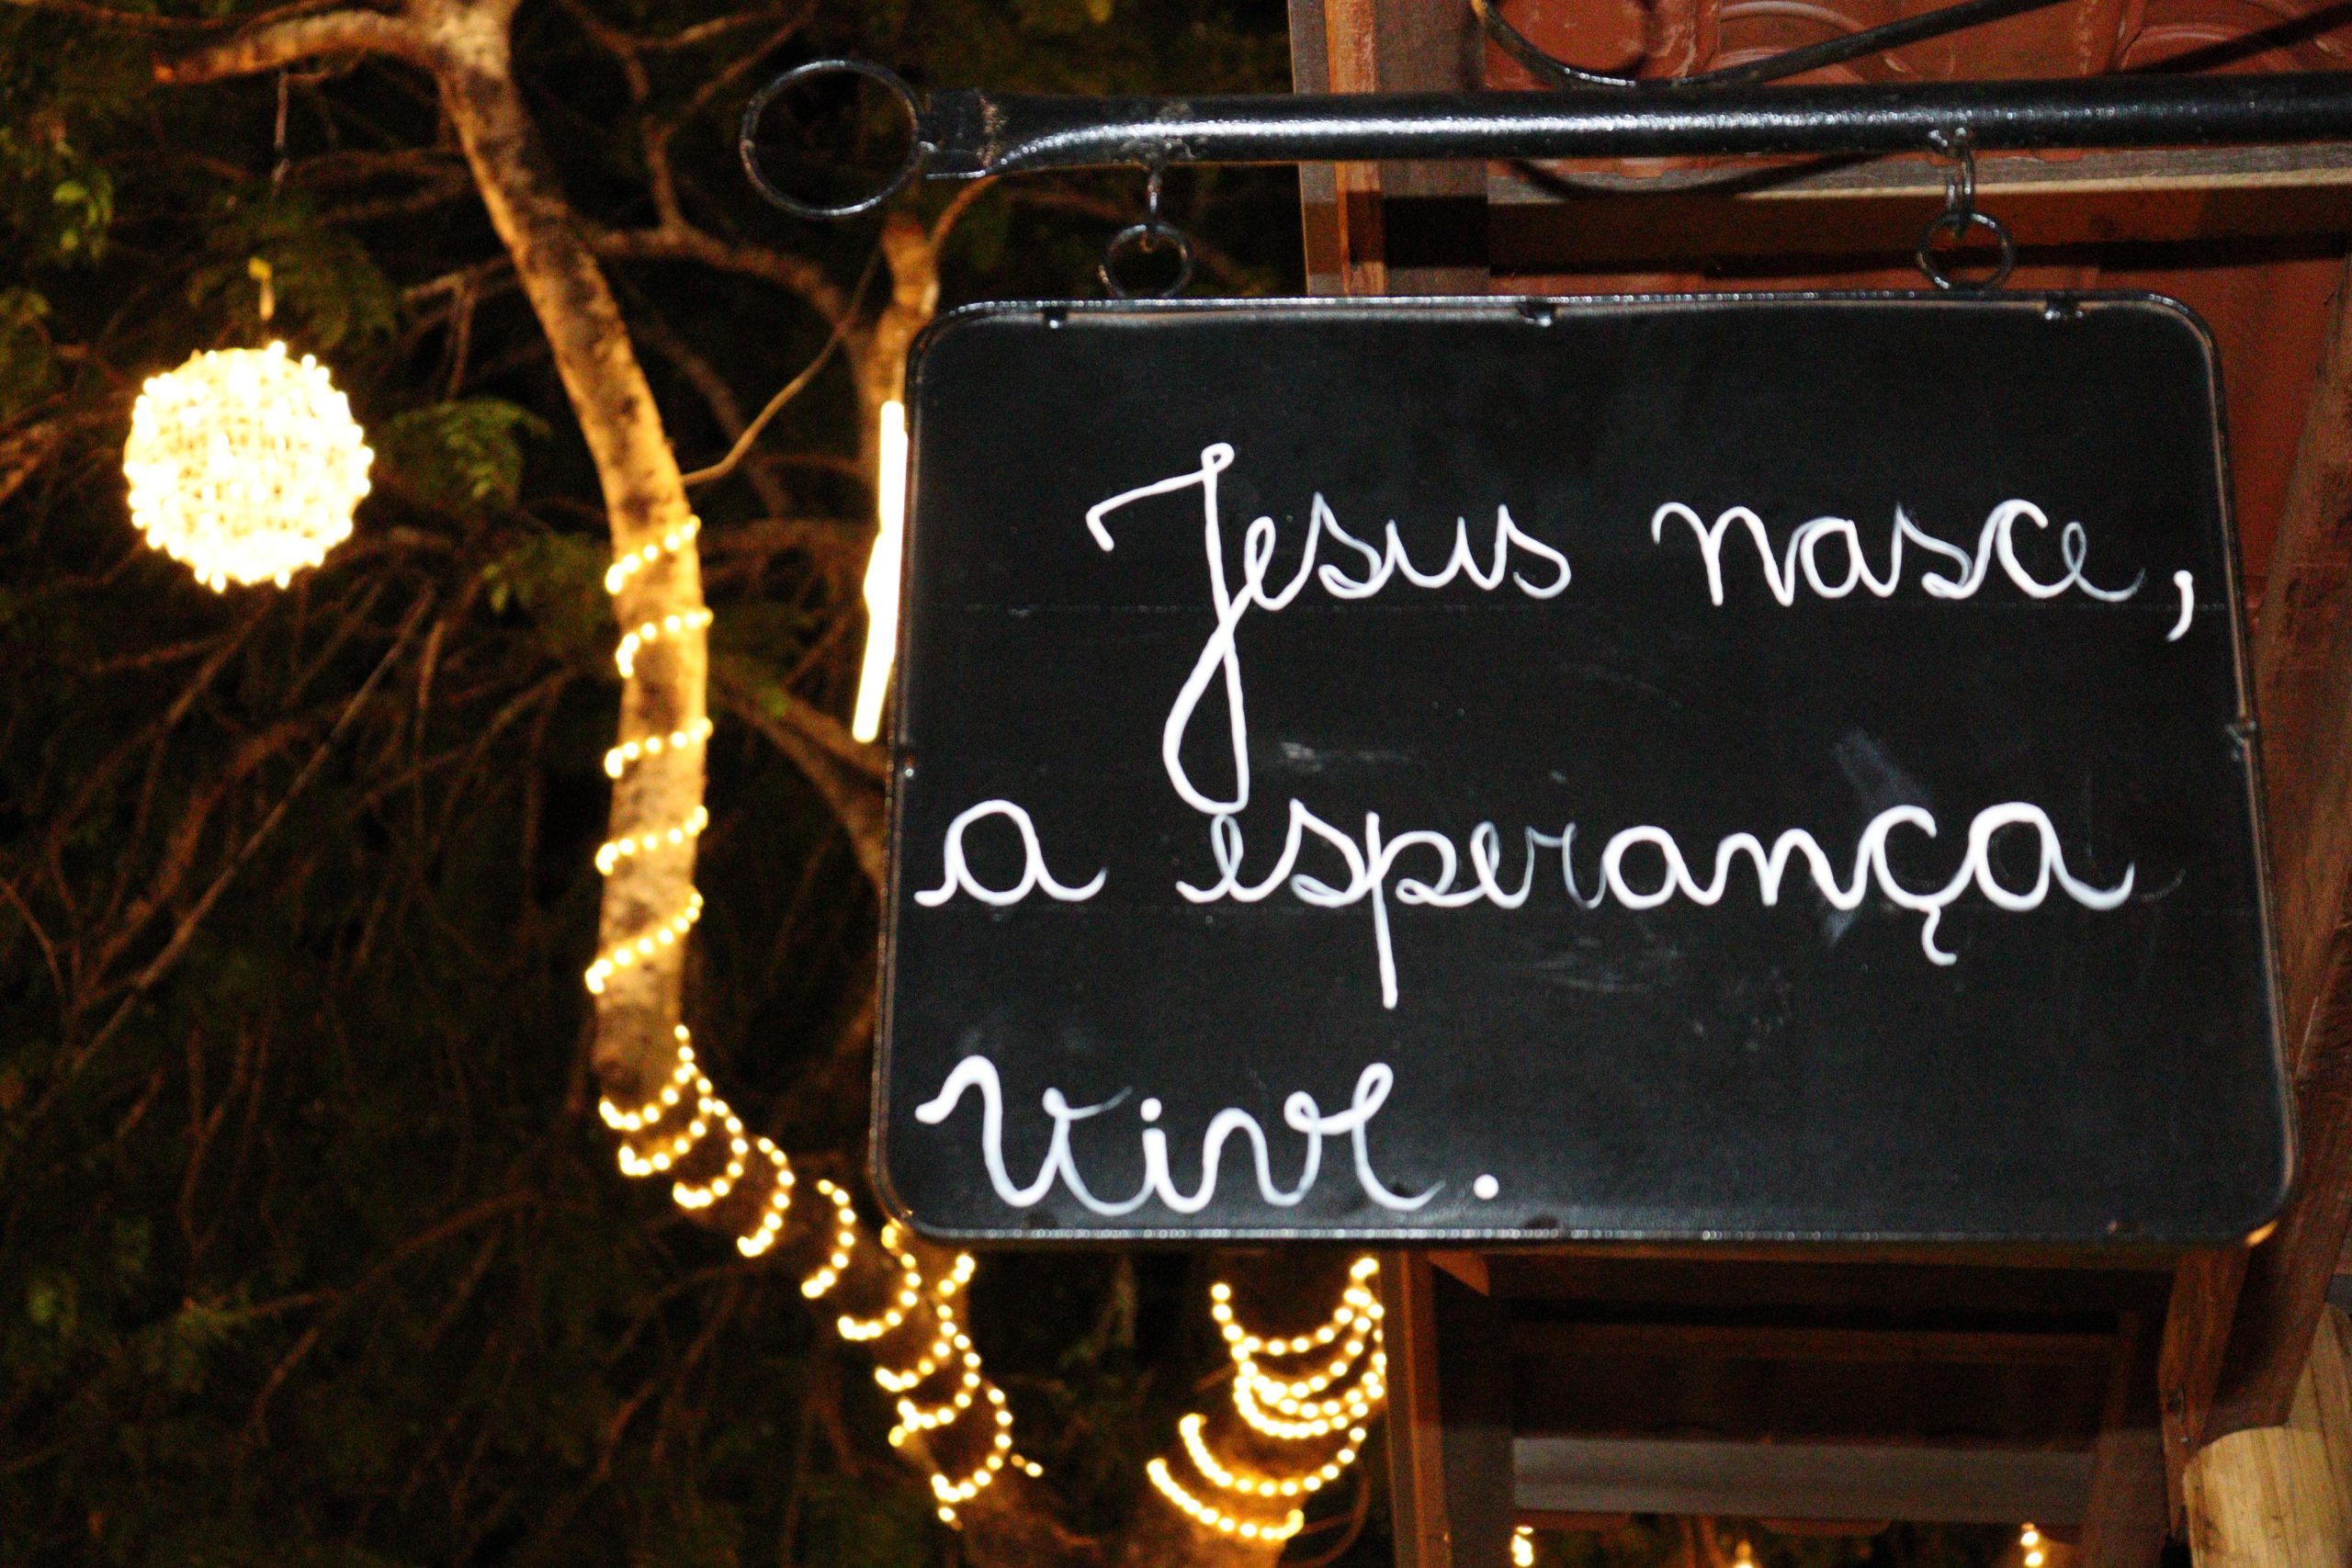 Jesus nasce,
a esperança
vive.